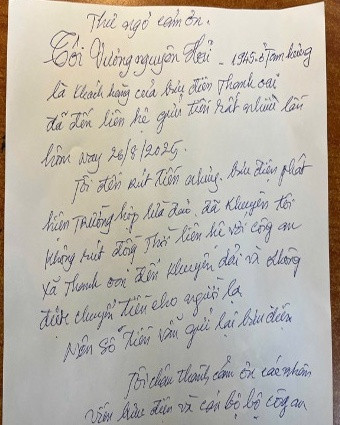 Thư ngỏ cảm ơn.
Tôi Vương nguyên Hói - 1945 ở Tam hưng
là khách hàng của bưu điện Thanh oai
đã đến liên hệ gửi tiền rất nhiều lần
hôm nay 26/8/2025,
Tôi đến rút tiền nhưng bưu điện phát
hiện Trường hợp lừa đảo, đã khuyên tôi
không rút đồng Thời liên hệ với công an
xã Thanh oai đến khuyên giải và không
được chuyển Tiền cho người lạ
Nên số tiền vẫn gửi lại bưu điện
Tôi chân thành cảm ơn các nhân
viên bưu điện và cán bộ công an